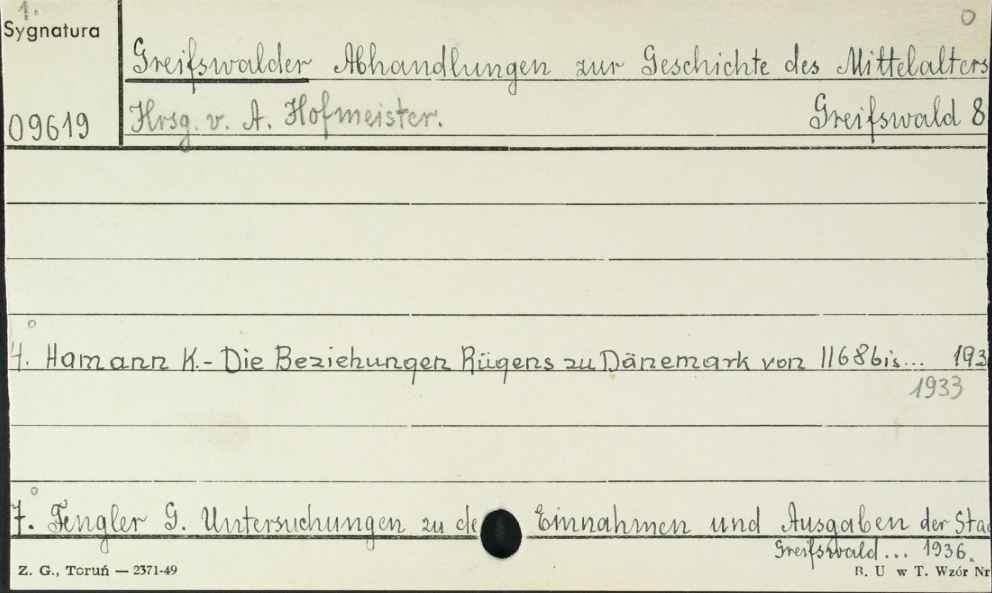 1.
Sygnatura
0
Greifswalder Abhandlungen zur Geschichte des Mittelalters
09619
Hrsg. v. A. Hofmeister. Greifswald 8
4. Hamann K. - Die Beziehungen Rügens zu Dänemark von 1168 bis... 193
1933
7. Fengler G. Untersuchungen zu de Einnahmen und Ausgaben der Sta
Greifswald... 1936.
Z. G., Toruń — 2371-49
B. U w T. Wzór Nr